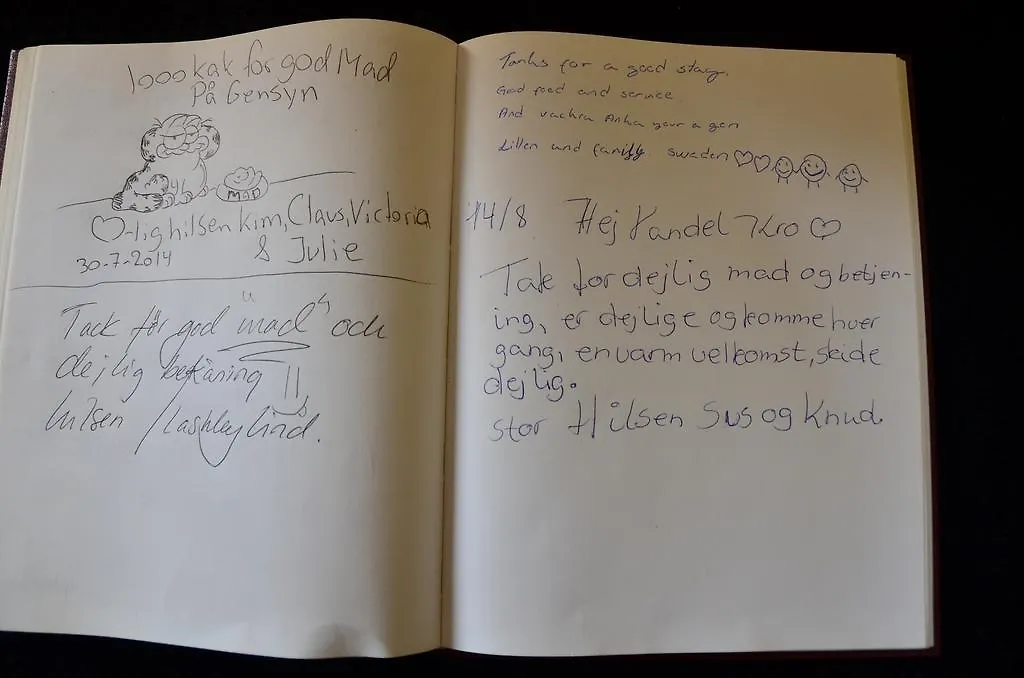 1000 kak for god Mad
På Gensyn
MAD
♡-lig hilsen Kim, Claus, Victoria
& Julie
30-7-2014
Tack för god "mad" och
dejlig betjäning
hilsen
Tanks for a good stay.
God food and service.
And
Lillen and family. sweden ♡♡
14/8. Hej Vandel Kro ♡
Tak for dejlig mad og betjen-
ing, er dejlige og komme hver
gang, en varm velkomst, skide
dejlig.
stor Hilsen Sus og Knud.